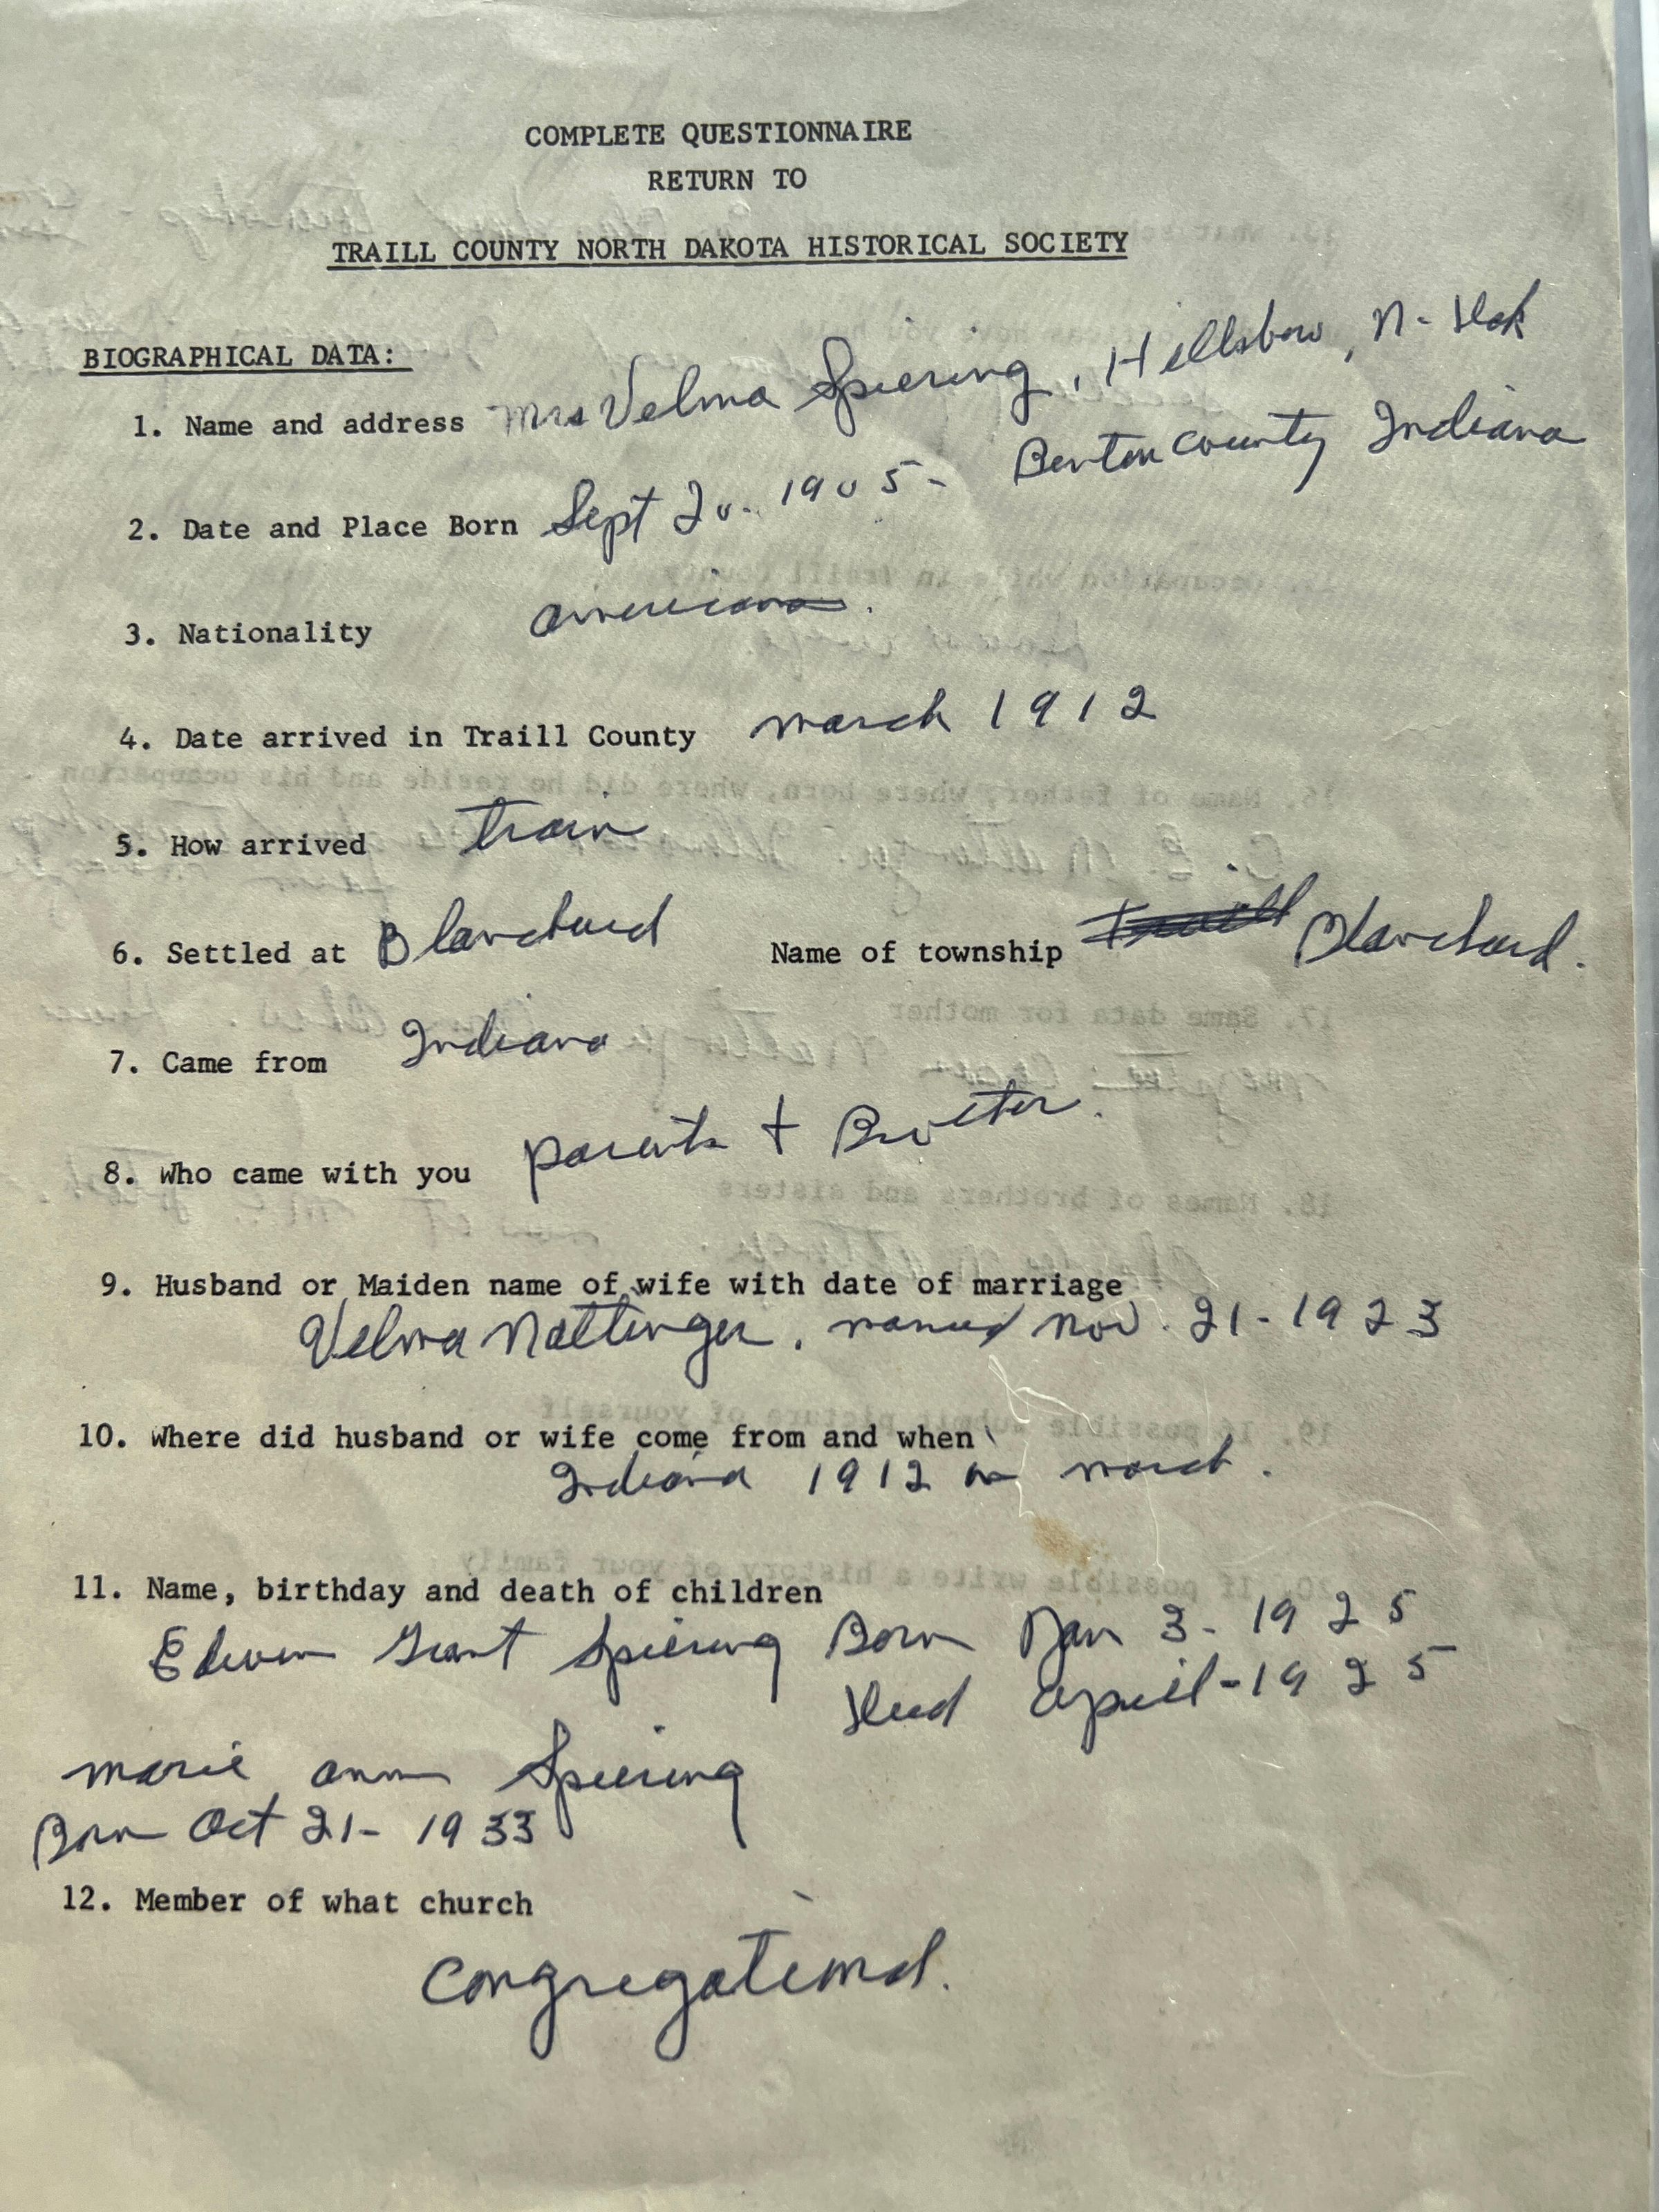 COMPLETE QUESTIONNAIRE
RETURN TO
TRAILL COUNTY NORTH DAKOTA HISTORICAL SOCIETY
BIOGRAPHICAL DATA:
1. Name and address Mrs Velma Spiering, Hillsboro, N-Dak
2. Date and Place Born Sept 20. 1905- Benton County Indiana
3. Nationality american.
4. Date arrived in Traill County march 1912
5. How arrived train
6. Settled at Blanchard Name of township Traill Blanchard.
7. Came from Indiana
8. Who came with you parents + Brother.
9. Husband or Maiden name of wife with date of marriage
Velma Nottinger, married Nov. 21-1923
10. Where did husband or wife come from and when
Indiana 1912 in march.
11. Name, birthday and death of children
Edwin Grant Spiering Born Jan 3-1925
Died April-1925
marie ann Spiering
Born Oct 21-1933
12. Member of what church
Congregational.